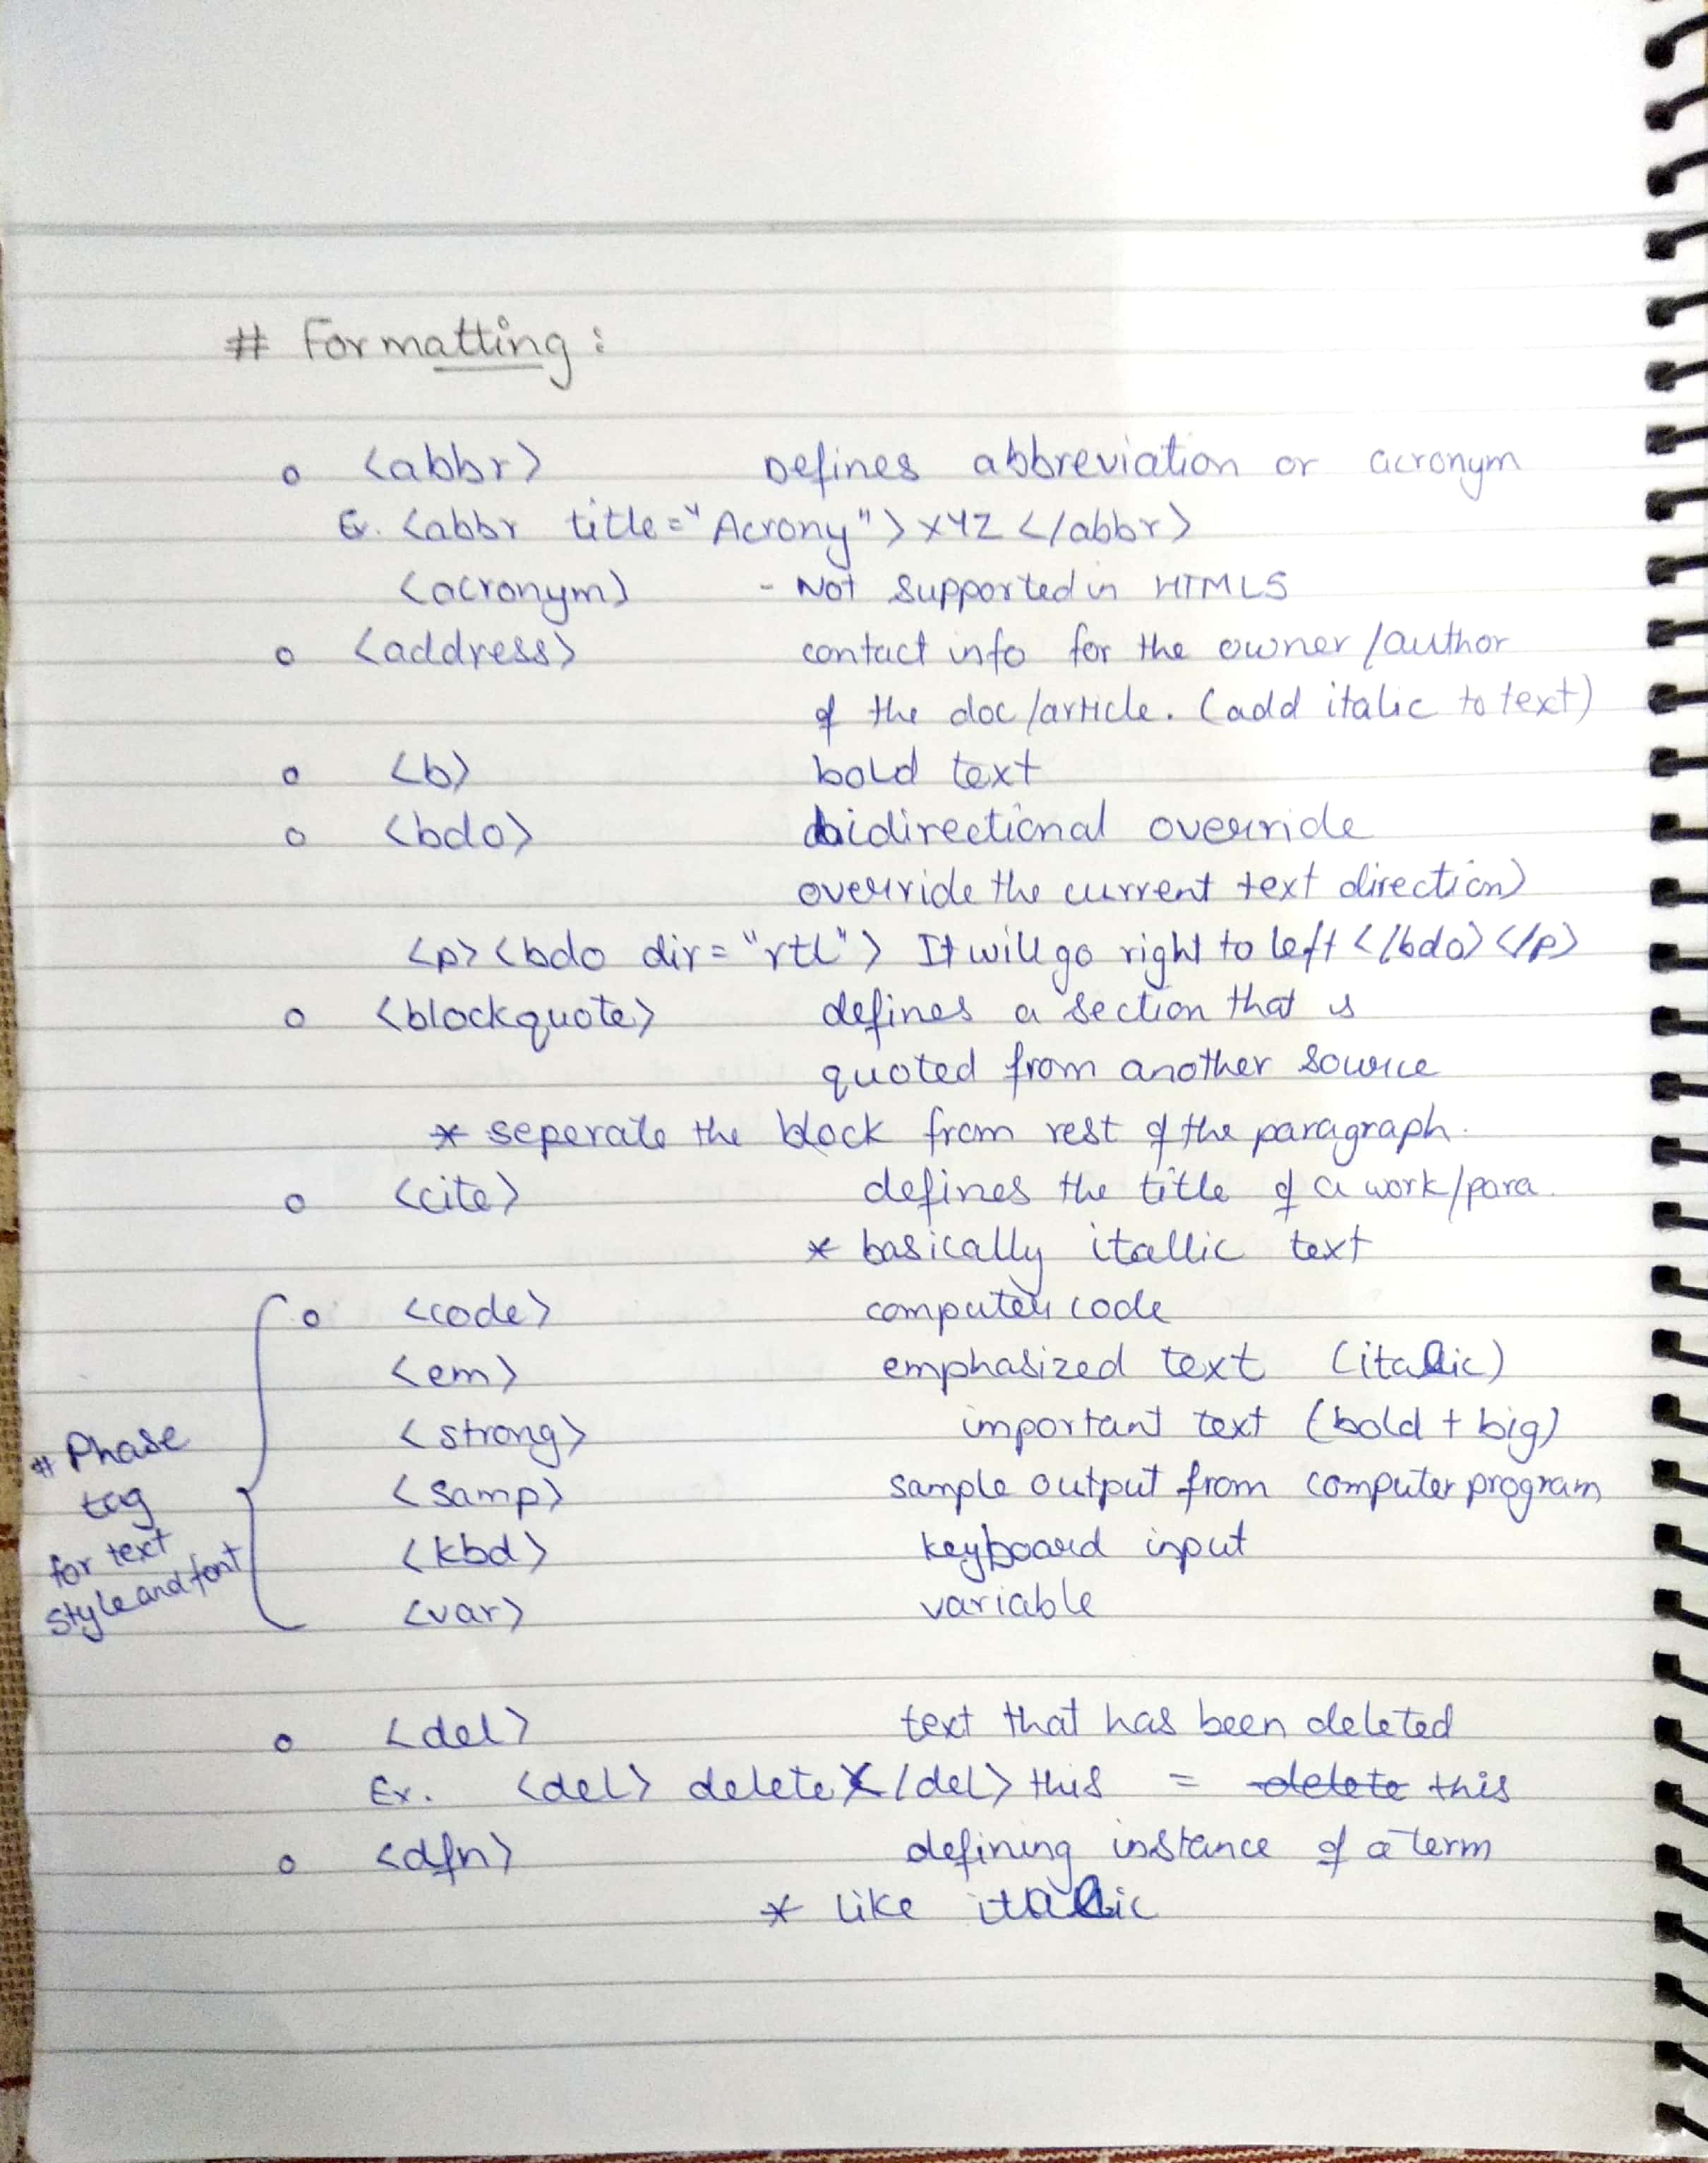 # Formatting :
o <abbr> Defines abbreviation or acronym
Ex. <abbr title="Acrony">XYZ</abbr>
<acronym> - Not supported in HTML5
o <address> contact info for the owner/author
of the doc/article. (add italic to text)
o <b> bold text
o <bdo> bidirectional override
override the current text direction)
<p><bdo dir="rtl"> It will go right to left </bdo></p>
o <blockquote> defines a section that is
quoted from another source
* seperate the block from rest of the paragraph.
o <cite> defines the title of a work/para.
* basically itallic text
o <code> computer code
<em> emphasized text (italic)
<strong> important text (bold + big)
# Phase
<samp> sample output from computer program
tag
<kbd> keyboard input
for text
style and font
<var> variable
o <del> text that has been deleted
Ex. <del> delete </del> this = delete this
o <dfn> defining instance of a term
* like italic